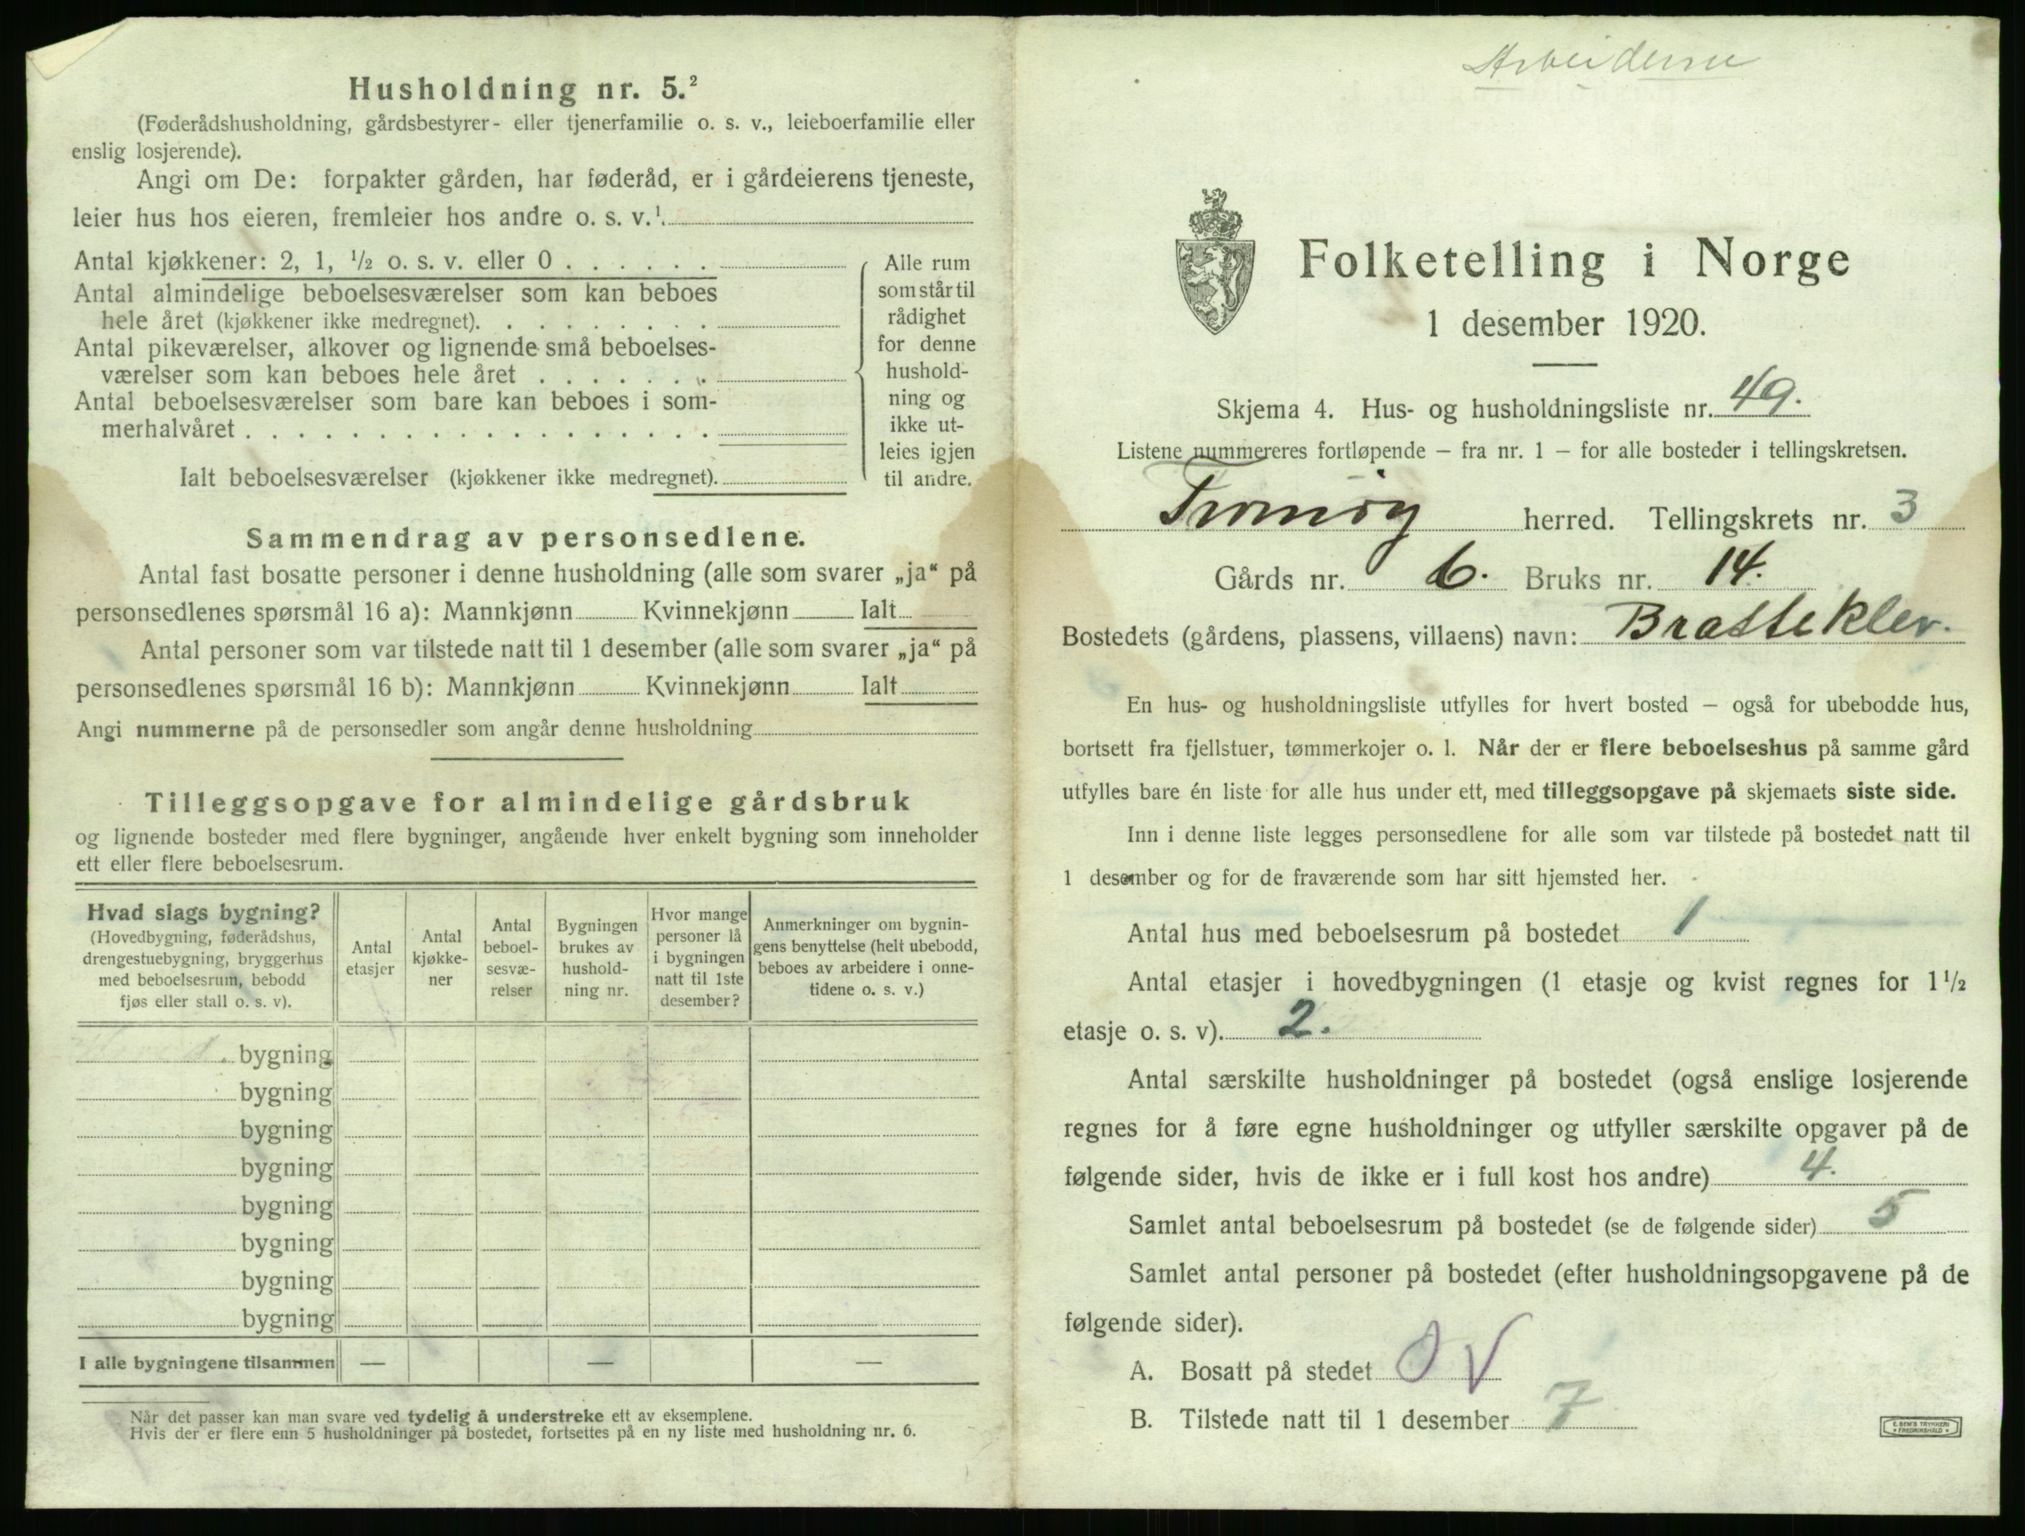 Husholdning nr. 5.²
(Føderådshusholdning, gårdsbestyrer- eller tjenerfamilie o. s. v., leieboerfamilie eller
enslig losjerende).
Angi om De: forpakter gården, har føderåd, er i gårdeierens tjeneste,
leier hus hos eieren, fremleier hos andre o. s. v.¹.
Antal kjøkkener: 2, 1, ½ o. s. v. eller 0 . . . . . .
Antal almindelige beboelsesværelser som kan beboes
hele året (kjøkkener ikke medregnet). . . . . . . . .
Antal pikeværelser, alkover og lignende små beboelses-
værelser som kan beboes hele året . . . . . . .
Antal beboelsesværelser som bare kan beboes i som-
merhalvåret . . . . . . . . . . . . . . . . . .
Ialt beboelsesværelser (kjøkkener ikke medregnet).
Alle rum
som står til
rådighet
for denne
hushold-
ning og
ikke ut-
leies igjen
til andre.
Sammendrag av personsedlene.
Antal fast bosatte personer i denne husholdning (alle som svarer „ja“ på
personsedlenes spørsmål 16 a): Mannkjønn Kvinnekjønn Ialt
Antal personer som var tilstede natt til 1 desember (alle som svarer „ja“ på
personsedlenes spørsmål 16 b): Mannkjønn Kvinnekjønn Ialt
Angi nummerne på de personsedler som angår denne husholdning
Tilleggsopgave for almindelige gårdsbruk
og lignende bosteder med flere bygninger, angående hver enkelt bygning som inneholder
ett eller flere beboelsesrum.
Hvad slags bygning?
(Hovedbygning, føderådshus,
drengestuebygning, bryggerhus
med beboelsesrum, bebodd
fjøs eller stall o. s. v).
Antal
etasjer
Antal
kjøkke-
ner
Antal
beboel-
sesvæ-
relser
Bygningen
brukes av
hushold-
ning nr.
Hvor mange
personer lå
i bygningen
natt til 1ste
desember?
Anmerkninger om bygnin-
gens benyttelse (helt ubebodd,
beboes av arbeidere i onne-
tidene o. s. v.)
bygning
bygning
bygning
bygning
bygning
bygning
bygning
bygning
I alle bygningene tilsammen — — —
Når det passer kan man svare ved tydelig å understreke ett av eksemplene.
Hvis der er flere enn 5 husholdninger på bostedet, fortsettes på en ny liste med husholdning nr. 6.
Arbeiderne
Folketelling i Norge
1 desember 1920.
Skjema 4. Hus- og husholdningsliste nr. 49.
Listene nummereres fortløpende – fra nr. 1 – for alle bosteder i tellingskretsen.
Tromøy herred. Tellingskrets nr. 3
Gårds nr. 6. Bruks nr. 14.
Bostedets (gårdens, plassens, villaens) navn: Bratteklev.
En hus- og husholdningsliste utfylles for hvert bosted – også for ubebodde hus,
bortsett fra fjellstuer, tømmerkojer o. l. Når der er flere beboelseshus på samme gård
utfylles bare én liste for alle hus under ett, med tilleggsopgave på skjemaets siste side.
Inn i denne liste legges personsedlene for alle som var tilstede på bostedet natt til
1 desember og for de fraværende som har sitt hjemsted her.
Antal hus med beboelsesrum på bostedet 1
Antal etasjer i hovedbygningen (1 etasje og kvist regnes for 1½
etasje o. s. v). 2.
Antal særskilte husholdninger på bostedet (også enslige losjerende
regnes for å føre egne husholdninger og utfyller særskilte opgaver på de
følgende sider, hvis de ikke er i full kost hos andre) 4.
Samlet antal beboelsesrum på bostedet (se de følgende sider) 5
Samlet antal personer på bostedet (efter husholdningsopgavene på de
følgende sider).
A. Bosatt på stedet 0 V
B. Tilstede natt til 1 desember 7
E. SEM'S TRYKKERI
FREDRIKSHALD